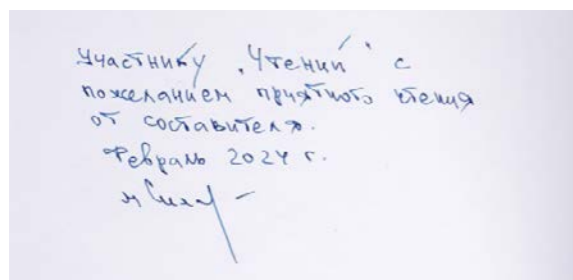 Участнику „Чтений" с
пожеланием приятного чтения
от составителя.
Февраль 2024 г.